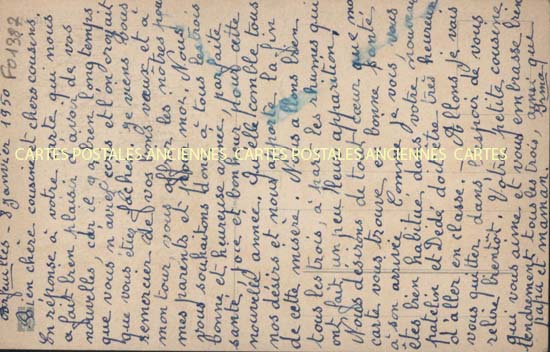 8 janvier 1950
Bien chère cousine et chers cousins,
En réponse à votre carte qui nous
a fait bien plaisir d'avoir de vos
nouvelles car il y a bien longtemps
que vous n'avez écrit et l'on croyait
que vous étiez fâchés. Je viens vous
remercier de vos bons vœux et à
mon tour, nous
vos parents et moi. Nous
vous souhaitons donc à tous les trois
bonne et heureuse année, parfaite
santé, joie et bonheur pour cette
nouvelle année. Qu'elle comble tous
nos désirs et nous apporte la fin
de cette misère. Nous allons bien
tous les trois, à part les rhumes qui
ont fait un peu leur apparition.
Nous désirons de tout cœur que ma
carte vous trouve en bonne santé
à son arrivée. Comme je vous
êtes bien habitués dans votre nouveau
patelin et Dédé doit être très heureux
d'aller en classe. Allons je vais
vous quitter dans l'espoir de vous
relire bientôt. Votre petite cousine
qui vous aime et vous embrasse bien
tendrement tous les trois, ainsi que
papa et maman.
F01387
CARTES POSTALES ANCIENNES CARTES POSTALES ANCIENNES CARTES POSTALES ANCIENNES